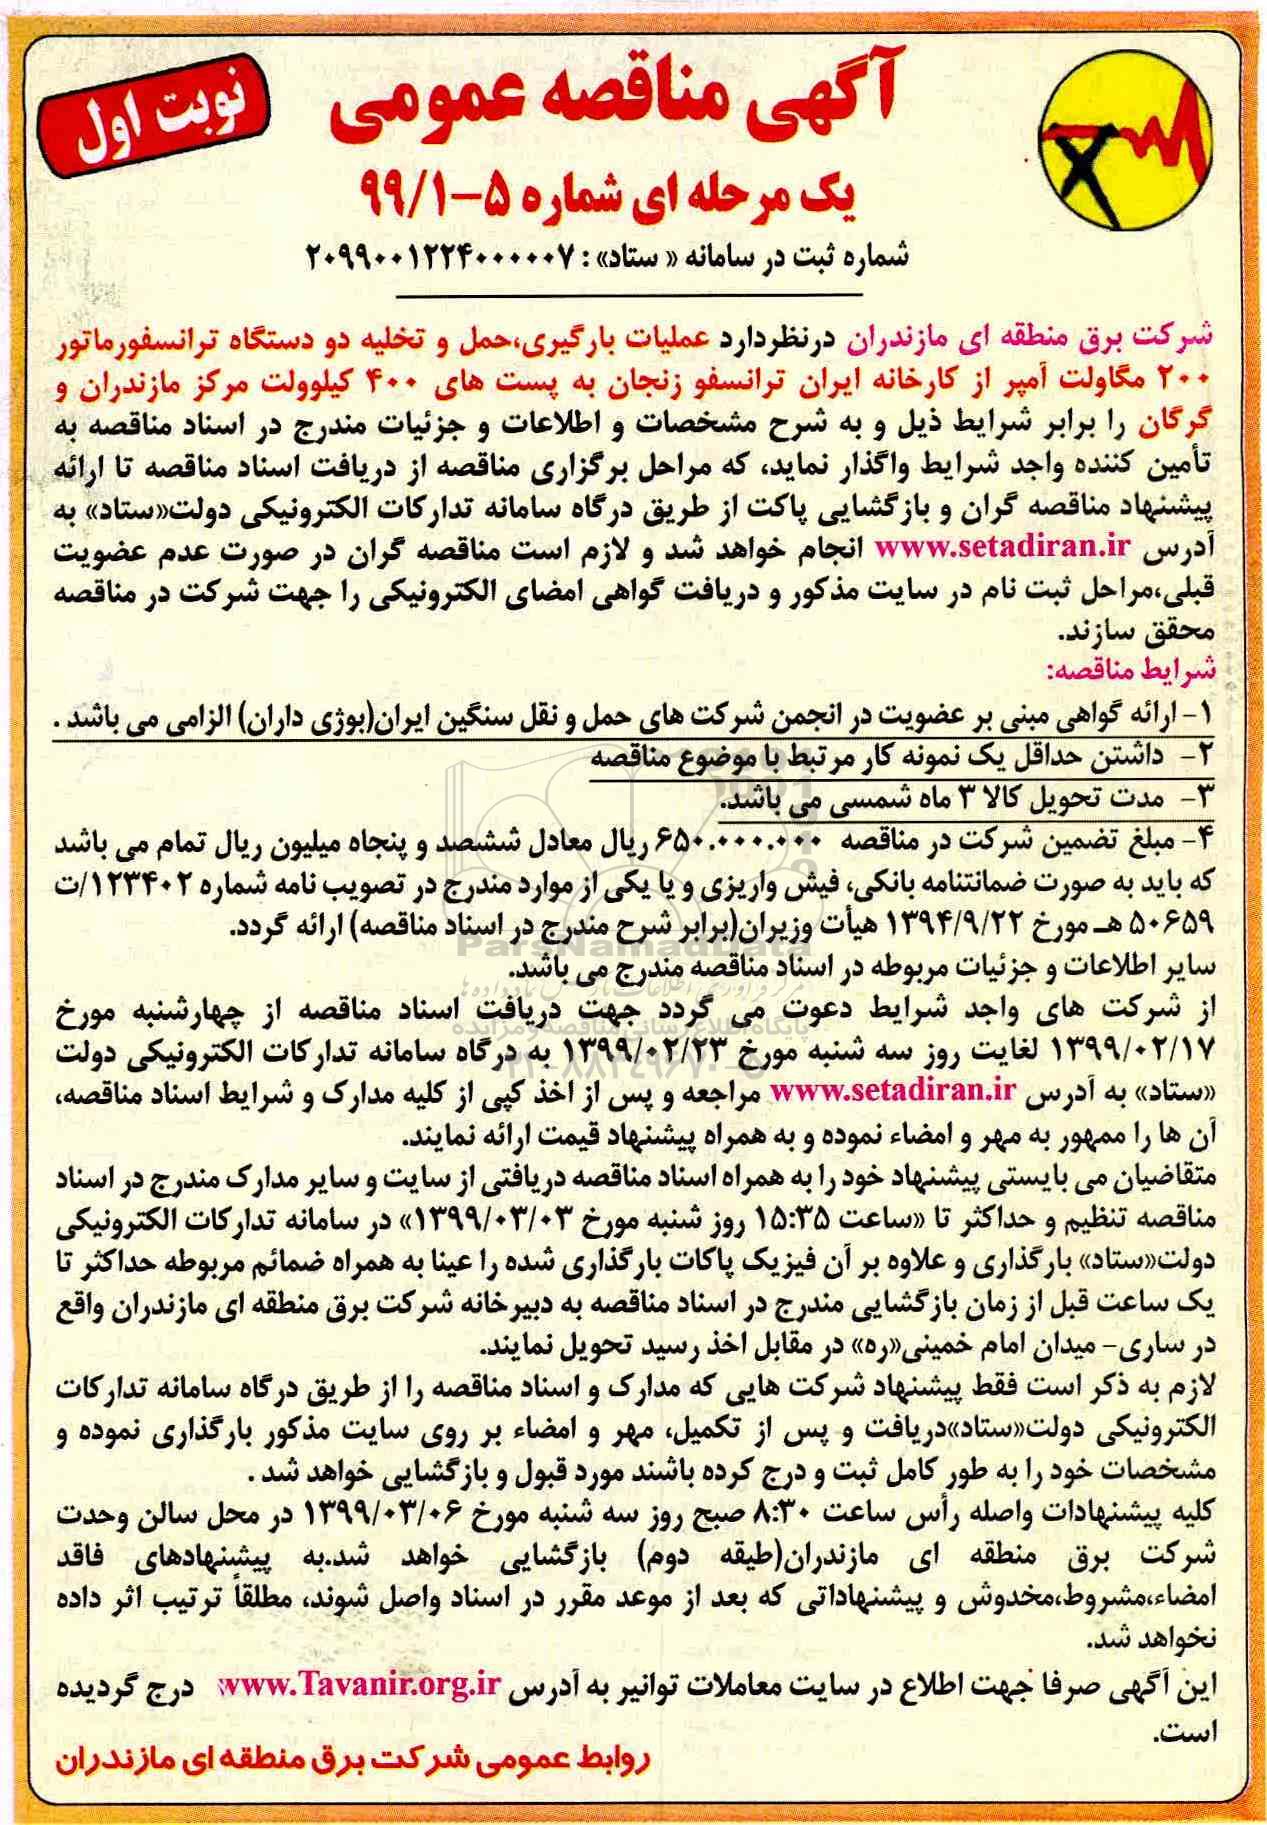 آگهی مناقصه عمومی
نوبت اول
یک مرحله ای شماره ۵-۹۹/۱
شماره ثبت در سامانه « ستاد» : ۲۰۹۹۰۰۱۲۲۴۰۰۰۰۰۷
شرکت برق منطقه ای مازندران درنظردارد عملیات بارگیری،حمل و تخلیه دو دستگاه ترانسفورماتور
۲۰۰ مگاولت آمپر از کارخانه ایران ترانسفو زنجان به پست های ۴۰۰ کیلوولت مرکز مازندران و
گرگان را برابر شرایط ذیل و به شرح مشخصات و اطلاعات و جزئیات مندرج در اسناد مناقصه به
تأمین کننده واجد شرایط واگذار نماید، که مراحل برگزاری مناقصه از دریافت اسناد مناقصه تا ارائه
پیشنهاد مناقصه گران و بازگشایی پاکت از طریق درگاه سامانه تدارکات الکترونیکی دولت«ستاد» به
آدرس www.setadiran.ir انجام خواهد شد و لازم است مناقصه گران در صورت عدم عضویت
قبلی،مراحل ثبت نام در سایت مذکور و دریافت گواهی امضای الکترونیکی را جهت شرکت در مناقصه
محقق سازند.
شرایط مناقصه:
۱- ارائه گواهی مبنی بر عضویت در انجمن شرکت های حمل و نقل سنگین ایران(بوژی داران) الزامی می باشد .
۲- داشتن حداقل یک نمونه کار مرتبط با موضوع مناقصه
۳- مدت تحویل کالا ۳ ماه شمسی می باشد.
۴- مبلغ تضمین شرکت در مناقصه ۶۵۰.۰۰۰.۰۰۰ریال معادل ششصد و پنجاه میلیون ریال تمام می باشد
که باید به صورت ضمانتنامه بانکی، فیش واریزی و یا یکی از موارد مندرج در تصویب نامه شماره ۱۲۳۴۰۲/ت
۵۰۶۵۹ هـ مورخ ۱۳۹۴/۹/۲۲ هیأت وزیران(برابر شرح مندرج در اسناد مناقصه) ارائه گردد.
سایر اطلاعات و جزئیات مربوطه در اسناد مناقصه مندرج می باشد.
از شرکت های واجد شرایط دعوت می گردد جهت دریافت اسناد مناقصه از چهارشنبه مورخ
۱۳۹۹/۰۲/۱۷ لغایت روز سه شنبه مورخ ۱۳۹۹/۰۲/۲۳ به درگاه سامانه تدارکات الکترونیکی دولت
«ستاد» به آدرس www.setadiran.ir مراجعه و پس از اخذ کپی از کلیه مدارک و شرایط اسناد مناقصه،
آن ها را ممهور به مهر و امضاء نموده و به همراه پیشنهاد قیمت ارائه نمایند.
متقاضیان می بایستی پیشنهاد خود را به همراه اسناد مناقصه دریافتی از سایت و سایر مدارک مندرج در اسناد
مناقصه تنظیم و حداکثر تا «ساعت ۱۵:۳۵ روز شنبه مورخ ۱۳۹۹/۰۳/۰۳» در سامانه تدارکات الکترونیکی
دولت«ستاد» بارگذاری و علاوه بر آن فیزیک پاکات بارگذاری شده را عینا به همراه ضمائم مربوطه حداکثر تا
یک ساعت قبل از زمان بازگشایی مندرج در اسناد مناقصه به دبیرخانه شرکت برق منطقه ای مازندران واقع
در ساری- میدان امام خمینی«ره» در مقابل اخذ رسید تحویل نمایند.
لازم به ذکر است فقط پیشنهاد شرکت هایی که مدارک و اسناد مناقصه را از طریق درگاه سامانه تدارکات
الکترونیکی دولت«ستاد»دریافت و پس از تکمیل، مهر و امضاء بر روی سایت مذکور بارگذاری نموده و
مشخصات خود را به طور کامل ثبت و درج کرده باشند مورد قبول و بازگشایی خواهد شد .
کلیه پیشنهادات واصله رأس ساعت ۸:۳۰ صبح روز سه شنبه مورخ ۱۳۹۹/۰۳/۰۶ در محل سالن وحدت
شرکت برق منطقه ای مازندران(طبقه دوم) بازگشایی خواهد شد.به پیشنهادهای فاقد
امضاء،مشروط،مخدوش و پیشنهاداتی که بعد از موعد مقرر در اسناد واصل شوند، مطلقاً ترتیب اثر داده
نخواهد شد.
این آگهی صرفا جهت اطلاع در سایت معاملات توانیر به آدرس www.Tavanir.org.ir درج گردیده
است.
روابط عمومی شرکت برق منطقه ای مازندران
ParsNamadData
پایگاه اطلاع رسانی مناقصه و مزایده